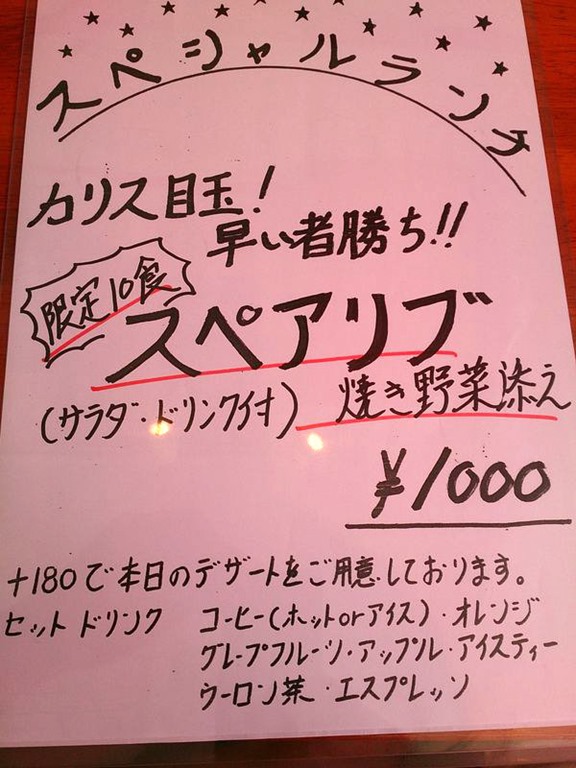 スペシャルランチ
カリス目玉!
早い者勝ち!!
限定10食
スペアリブ
焼き野菜添え
(サラダ・ドリンク付)
¥1000
+180で本日のデザートをご用意しております。
セットドリンク コーヒー(ホットorアイス)・オレンジ
グレープフルーツ・アップル・アイスティー
ウーロン茶・エスプレッソ